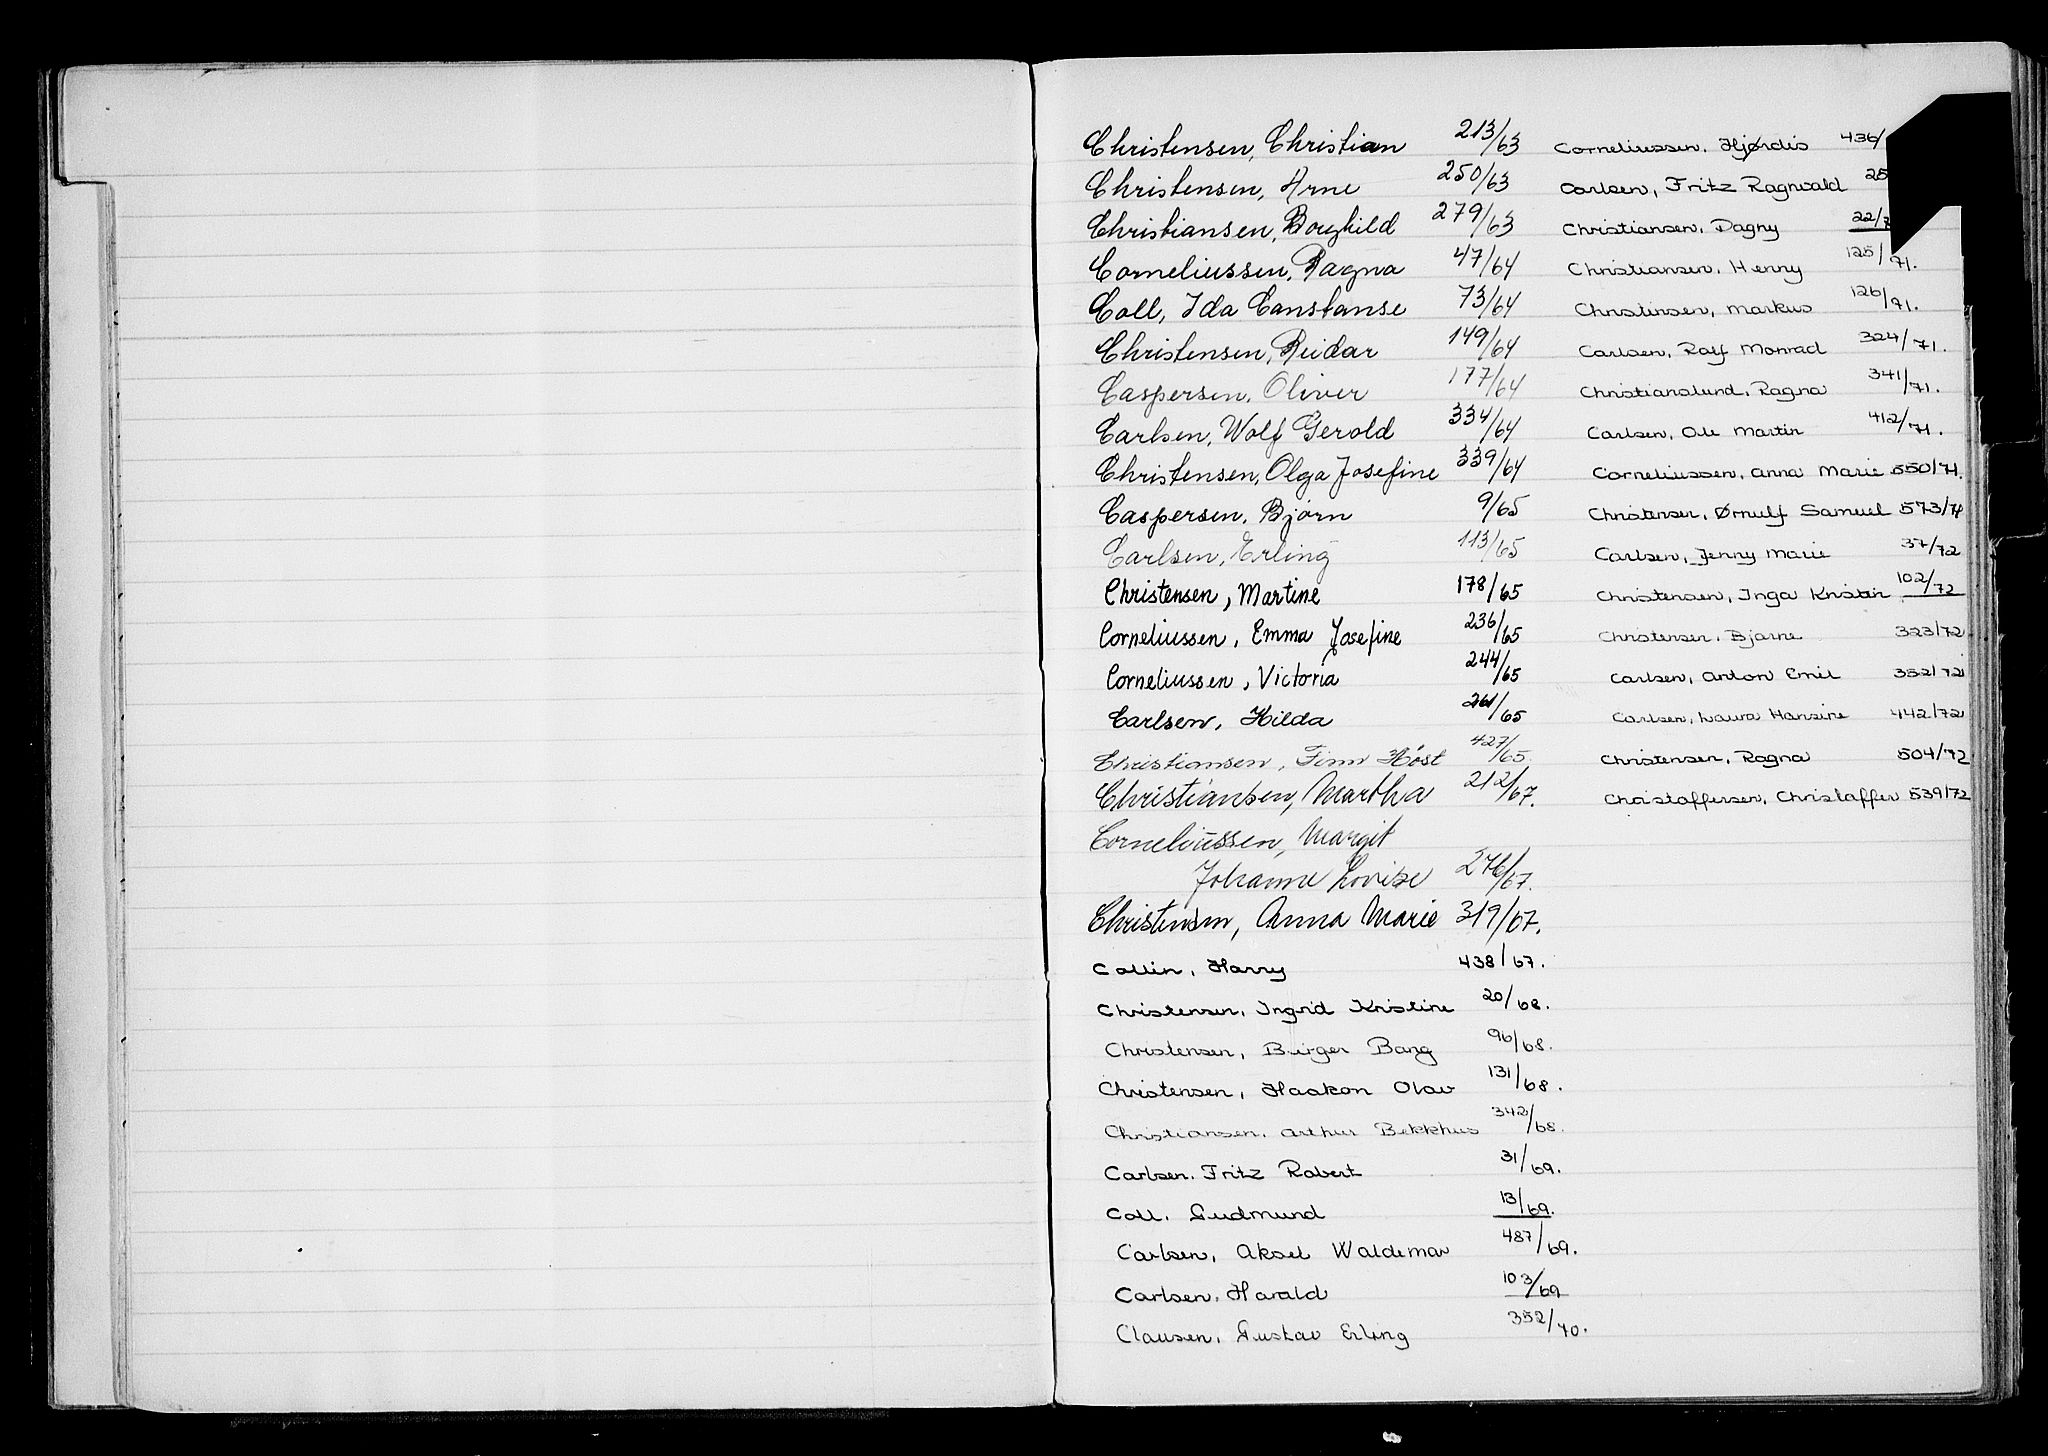 Christensen, Christian 213/63
Christensen, Arne 250/63
Christiansen, Borghild 279/63
Corneliussen, Ragna 47/64
Coll, Ida Canstanse 73/64
Christensen, Reidar 149/64
Caspersen, Oliver 177/64
Carlsen, Wolf Gerold 334/64
Christensen, Olga Josefine 339/64
Caspersen, Bjørn 9/65
Carlsen, Erling 113/65
Christensen, Martine 178/65
Corneliussen, Emma Josefine 236/65
Corneliussen, Victoria 244/65
Carlsen, Hilda 261/65
Christiansen, Finn Høst 427/65
Christiansen, Martha 212/67.
Corneliussen, Margit
Johanne Lovise 276/67.
Christensen, Anna Marie 319/67.
Collin, Harry 438/67.
Christensen, Ingrid Kristine 20/68.
Christensen, Birger Bang 96/68.
Christensen, Haakon Olav 131/68.
Christiansen, Arthur Bekkhus 342/68.
Carlsen, Fritz Robert 31/69.
Coll, Gudmund 13/69.
Carlsen, Aksel Waldemar 487/69.
Carlsen, Harald 103/69
Clausen, Gustav Erling 352/70.
Corneliussen, Hjørdis 436/
Carlsen, Fritz Ragnvald 25
Christiansen, Dagny 22/7
Christiansen, Henny 125/71.
Christensen, Markus 126/71.
Carlsen, Ralf Monrad 324/71.
Christianslund, Ragna 341/71.
Carlsen, Ole Martin 412/71.
Corneliussen, Anna Marie 550/71.
Christensen, Ørnulf Samuel 573/71
Carlsen, Jenny Marie 37/72
Christensen, Inga Kristin 102/72
Christensen, Bjarne 323/72
Carlsen, Anton Emil 352/72
Carlsen, Laura Hansine 442/72
Christensen, Ragna 504/72
Christoffersen, Christoffer 539/72